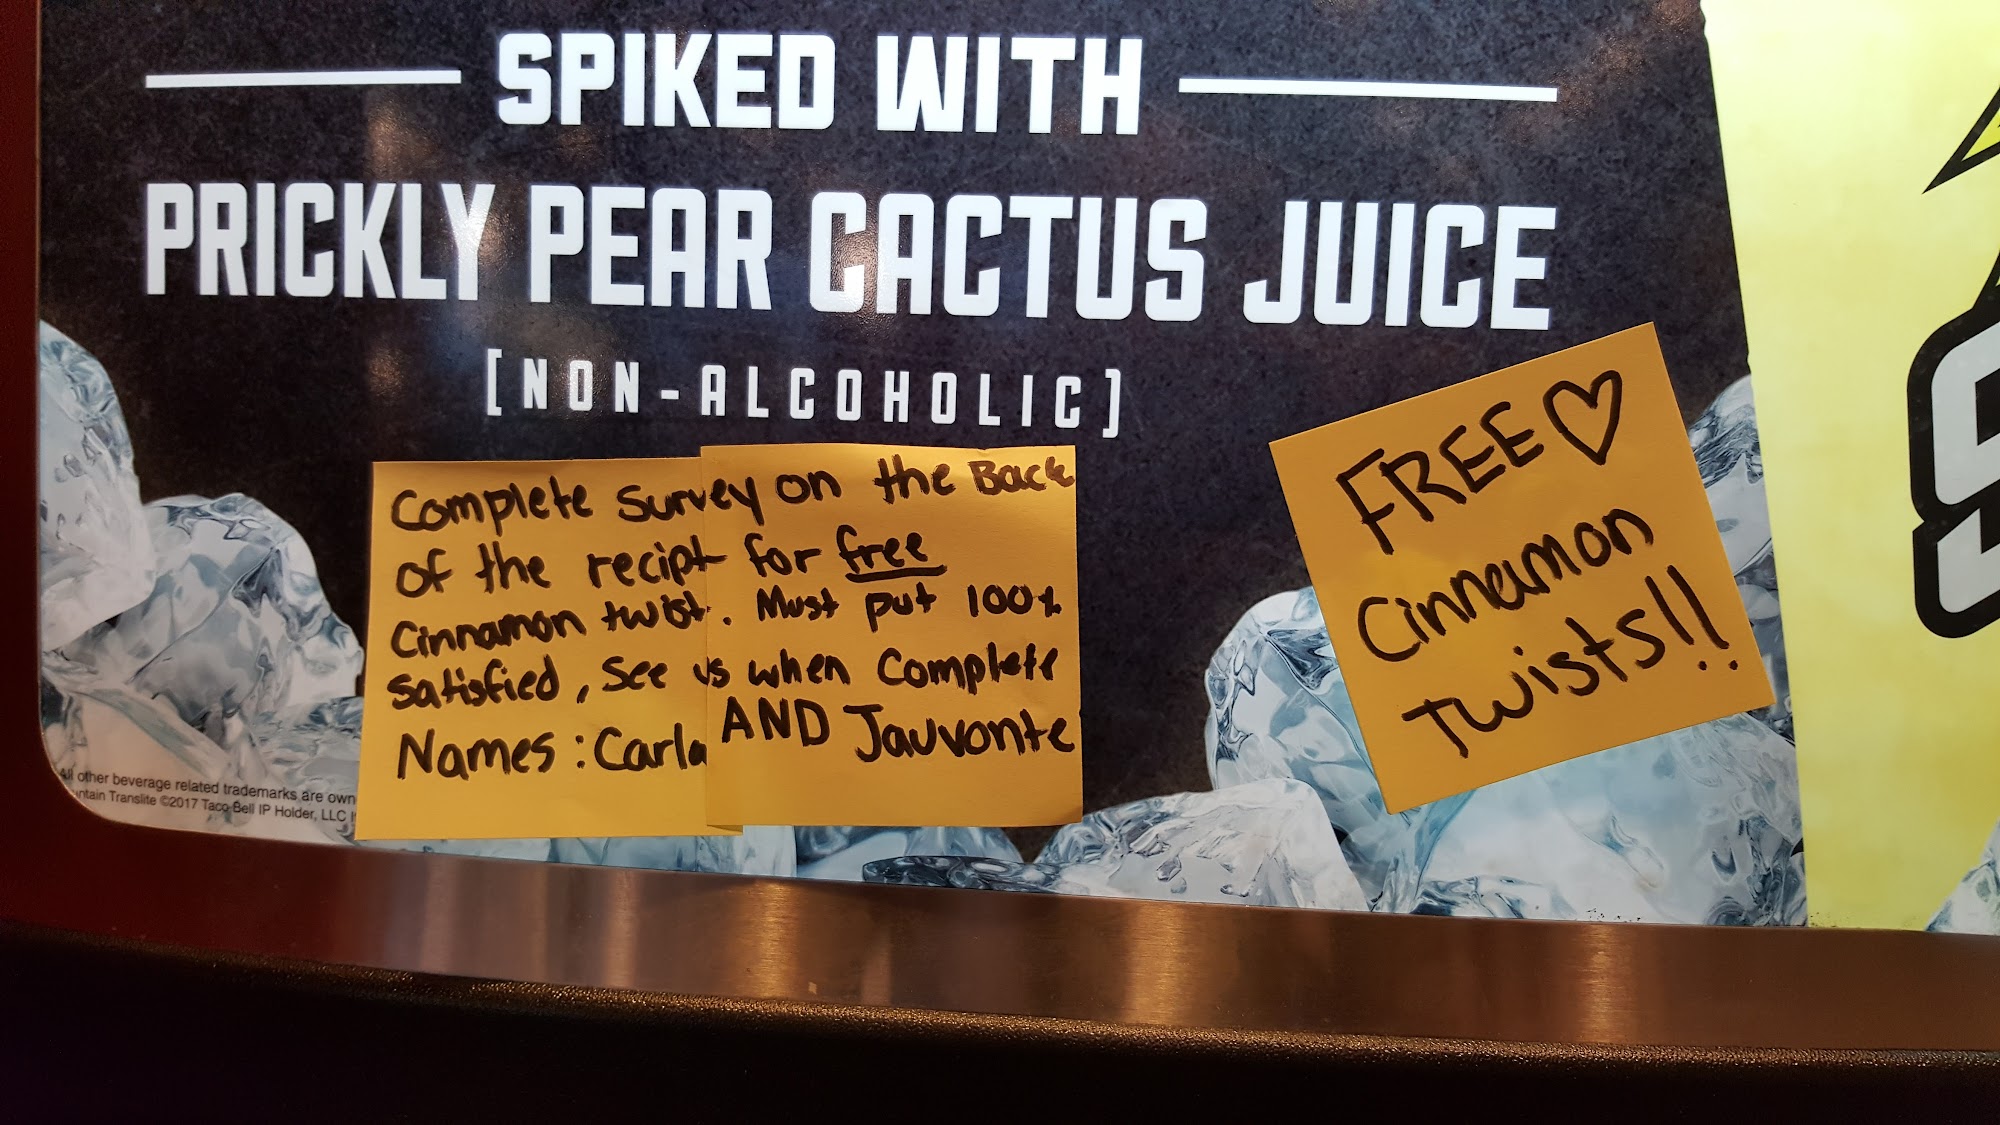 SPIKED WITH
PRICKLY PEAR CACTUS JUICE
[NON-ALCOHOLIC]
Complete survey on the Back
of the recipt for free
Cinnamon twist. Must put 100%
Satisfied, See us when Complete
Names: Carla AND Jauvonte
FREE ♡
Cinnamon
Twists!!
All other beverage related trademarks are own
ntain Translite ©2017 Taco Bell IP Holder, LLC
S